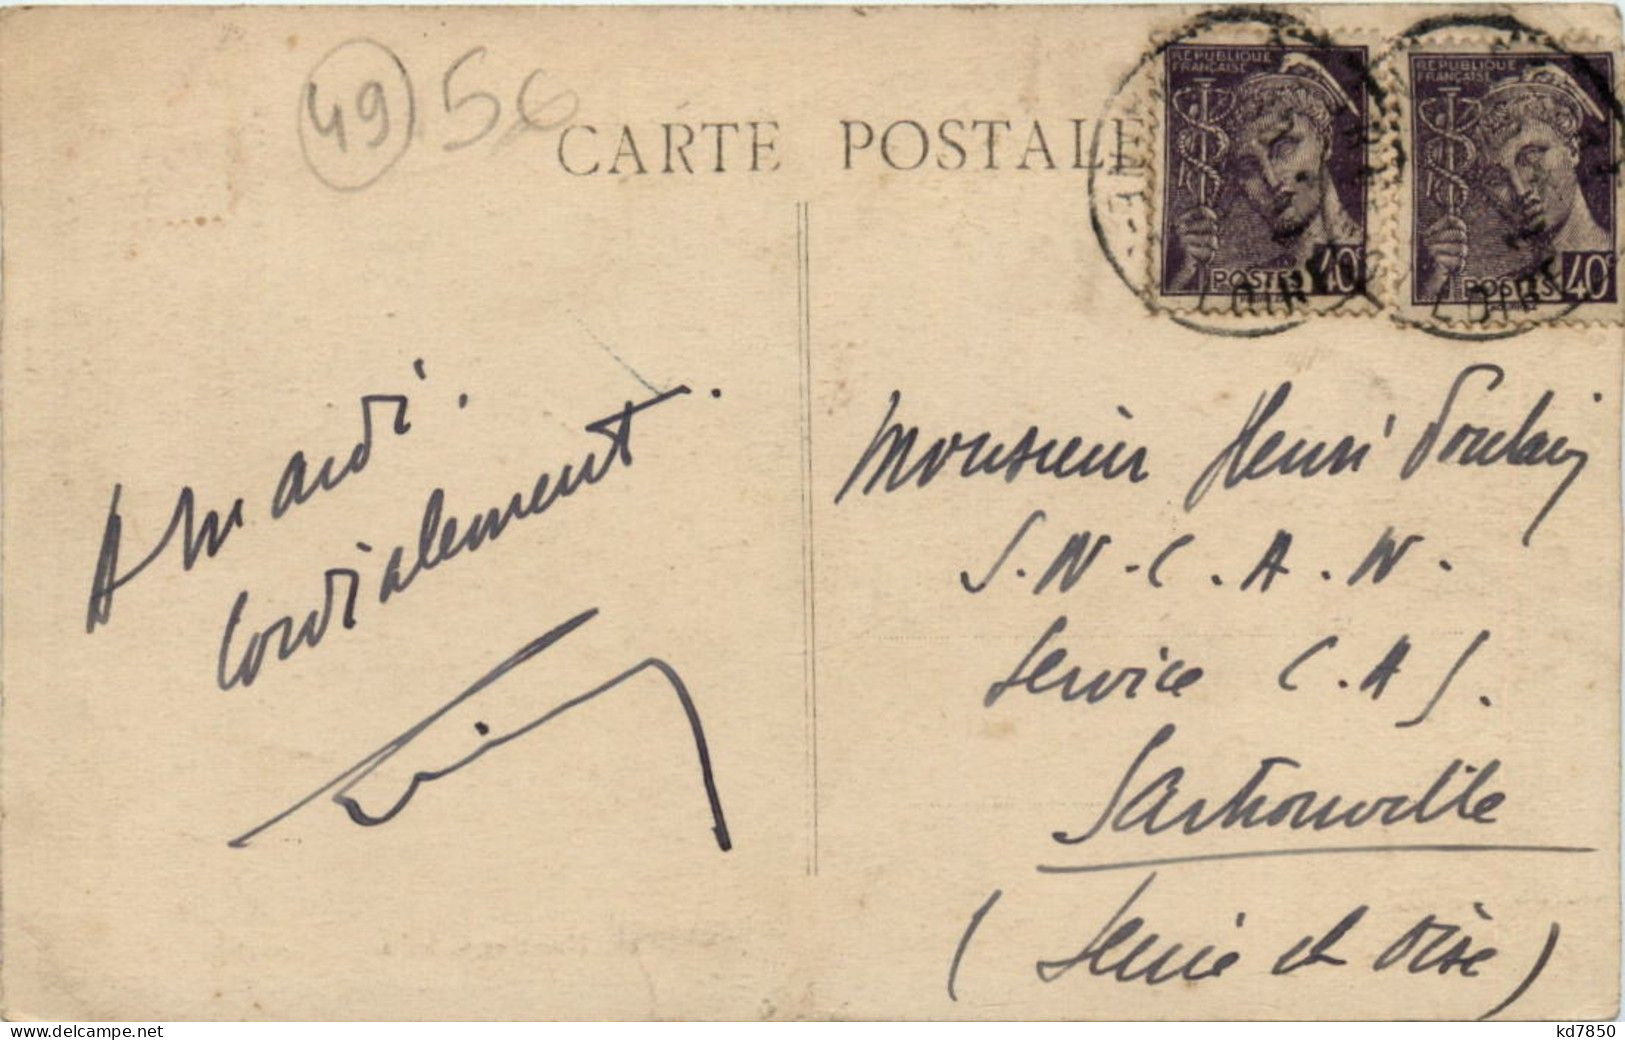 49 56
CARTE POSTALE
RÉPUBLIQUE
FRANÇAISE
POSTES 40c
LOIRE
RÉPUBLIQUE
FRANÇAISE
POSTES 40c
LOIRE
A mardi.
Cordialement.
Monsieur Henri Poulain
S.N.C.A.N.
Service C.A.S.
Sartrouville
(Seine et Oise)
kd7850